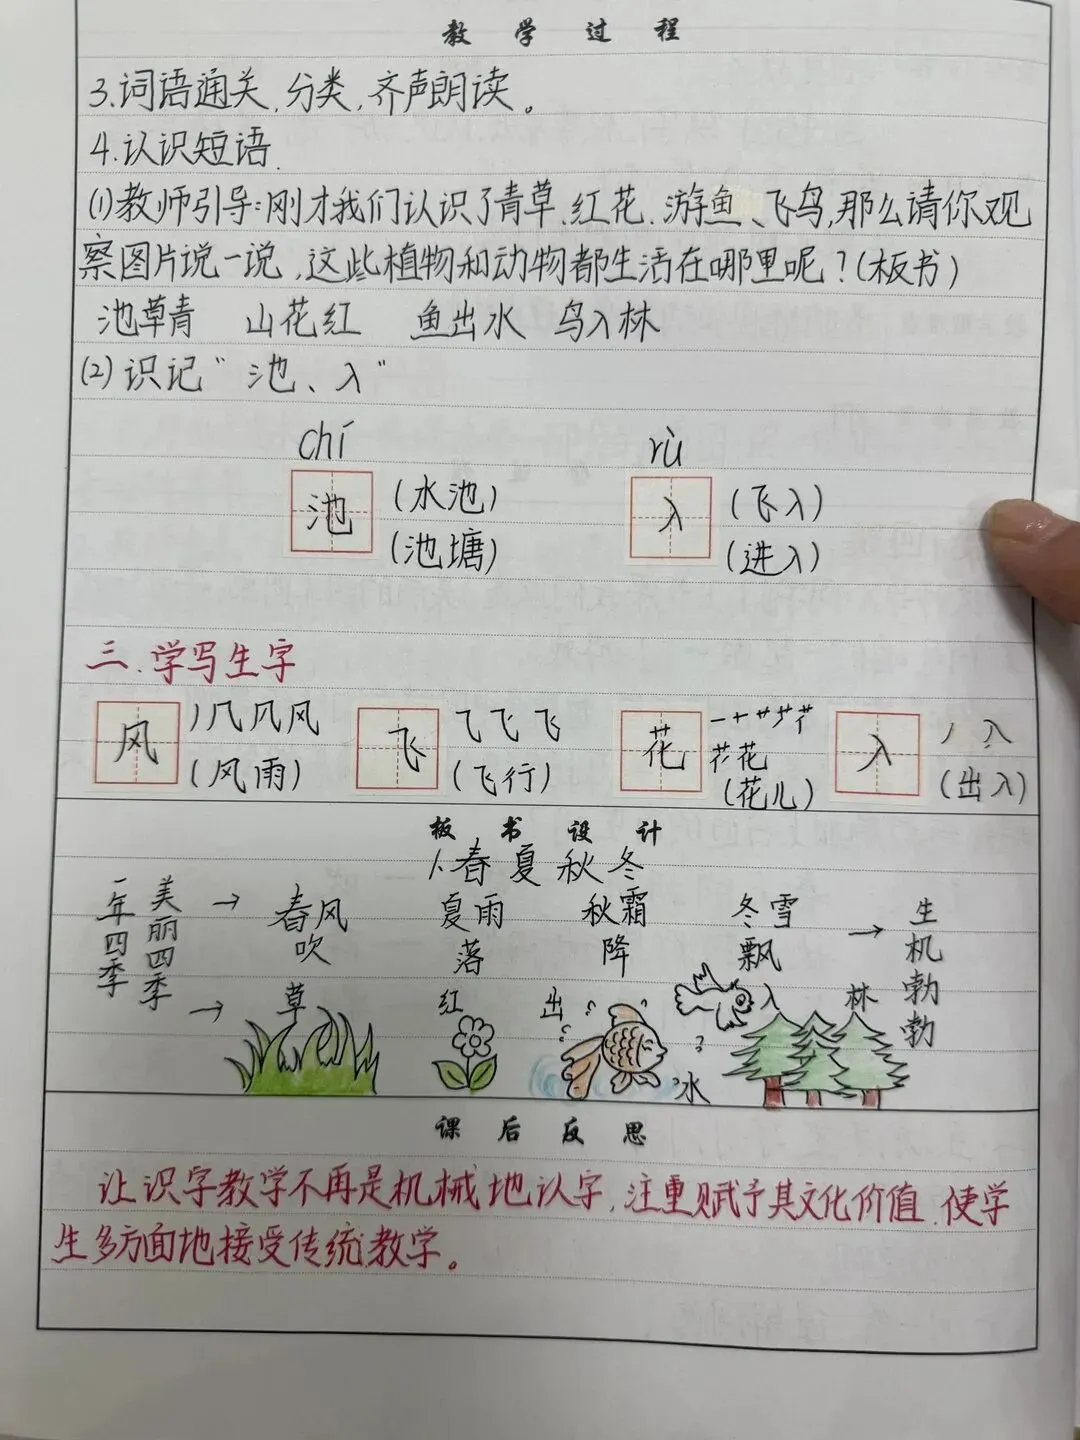 教学过程
3.词语通关,分类,齐声朗读。
4.认识短语.
(1)教师引导:刚才我们认识了青草、红花、游鱼、飞鸟,那么请你观
察图片说一说,这些植物和动物都生活在哪里呢?(板书)
池草青 山花红 鱼出水 鸟入林
(2)识记“池、入”
chí rù
池 (水池) 入 (飞入)
(池塘) (进入)
三.学写生字
风 (风雨) 飞 (飞行) 花 (花儿) 入 (出入)
板书设计
1.春夏秋冬
一年四季 美丽四季 → 春风吹 夏雨落 秋霜降 冬雪飘 → 生机勃勃
→ 草 红 出 水 入 林
课后反思
让识字教学不再是机械地认字,注重赋予其文化价值.使学
生多方面地接受传统教学。